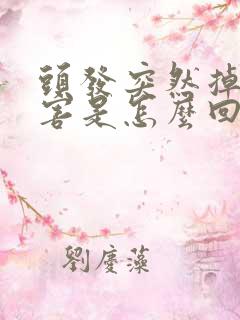 頭發突然掉
害是怎麼回
劉慶藻